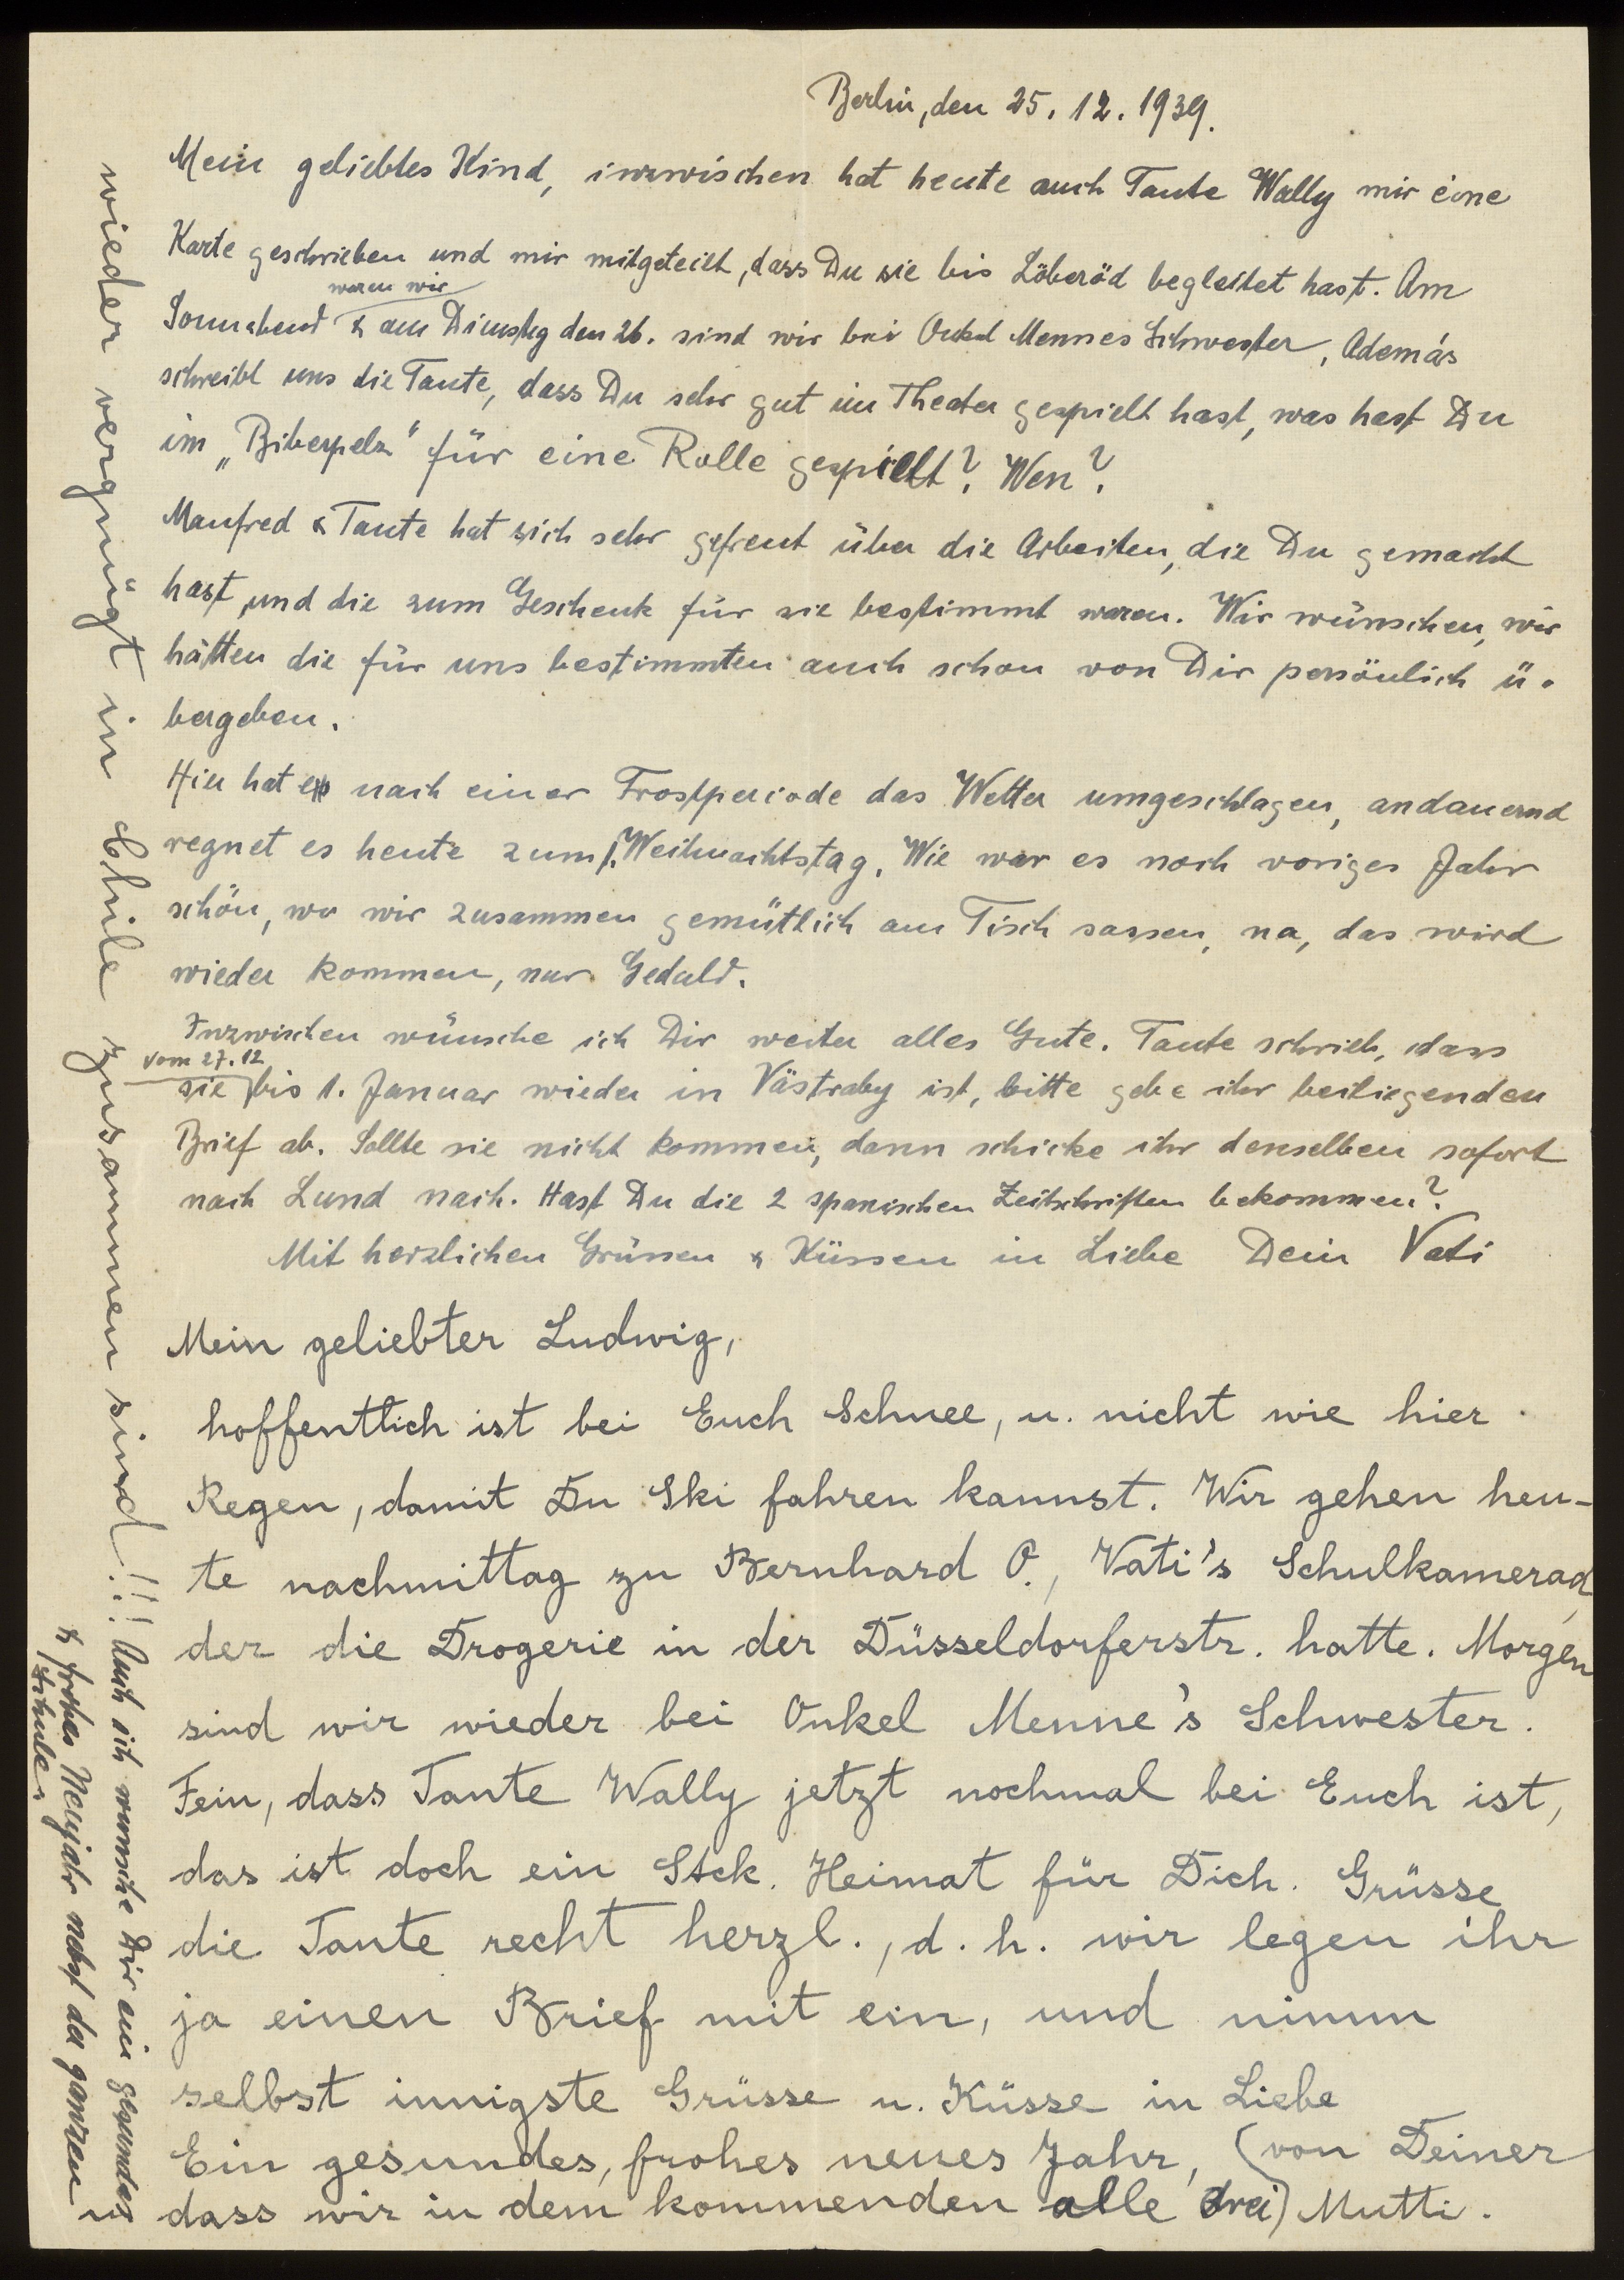 Berlin, den 25. 12. 1939.
Mein geliebtes Kind, inzwischen hat heute auch Tante Wally mir eine
Karte geschrieben und mir mitgeteilt, dass Du sie bis Löberöd begleitet hast. Am
waren wir
Sonnabend & am Dienstag den 26. sind wir bei Onkel Mennes Schwester. Además
schreibt uns die Tante, dass Du sehr gut im Theater gespielt hast, was hast Du
im „Biberpelz" für eine Rolle gespielt? Wen?
Manfred & Tante hat sich sehr gefreut über die Arbeiten, die Du gemacht
hast, und die zum Geschenk für sie bestimmt waren. Wir wünschen, wir
hätten die für uns bestimmten auch schon von Dir persönlich ü-
bergeben.
Hier hat nach einer Frostperiode das Wetter umgeschlagen, andauernd
regnet es heute zum 1. Weihnachtstag. Wie war es noch voriges Jahr
schön, wo wir zusammen gemütlich am Tisch sassen, na, das wird
wieder kommen, nur Geduld.
Inzwischen wünsche ich Dir weiter alles Gute. Tante schrieb, dass
vom 27.12
sie bis 1. Januar wieder in Västraby ist, bitte gebe ihr beiliegenden
Brief ab. Sollte sie nicht kommen, dann schicke ihr denselben sofort
nach Lund nach. Hast Du die 2 spanischen Zeitschriften bekommen?
Mit herzlichen Grüssen & Küssen in Liebe Dein Vati
Mein geliebter Ludwig,
hoffentlich ist bei Euch Schnee, u. nicht wie hier
Regen, damit Du Ski fahren kannst. Wir gehen heu-
te nachmittag zu Bernhard O., Vati's Schulkamerad,
der die Drogerie in der Düsseldorferstr. hatte. Morgen
sind wir wieder bei Onkel Menne's Schwester.
Fein, dass Tante Wally jetzt nochmal bei Euch ist,
das ist doch ein Stck. Heimat für Dich. Grüsse
die Tante recht herzl., d. h. wir legen ihr
ja einen Brief mit ein, und nimm
selbst innigste Grüsse u. Küsse in Liebe
Ein gesundes, frohes neues Jahr, (von Deiner
dass wir in dem kommenden alle drei) Mutti.
wieder vergnügt in Chile zusammen sind!!! Auch ich wünsche Dir ein gesundes
& frohes Neujahr nebst der ganzen
Schule.